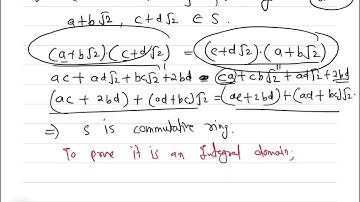 a+b√2 , c+d√2 ∈ S.
(a+b√2)·(c+d√2) = (c+d√2)·(a+b√2)
ac + ad√2 + bc√2 + 2bd = ca + cb√2 + ad√2 + 2bd
(ac + 2bd) + (ad+bc)√2 = (ac+2bd) + (ad + bc)√2.
⇒ S is commutative ring.
To prove it is an Integral domain;